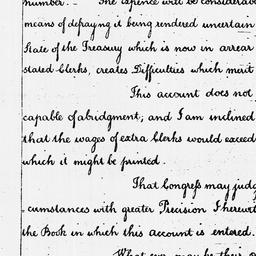 number. — The expence will be considerab
means of defraying it being rendered uncertain
State of the Treasury which is now in arrear
stated Clerks, creates Difficulties which merit
This account does not
capable of abridgment; and I am inclined
that the wages of extra Clerks would exceed
which it might be printed.
That Congress may judg
-cumstances with greater Precision I herewit
the Book in which this account is entered.
What ever may be their